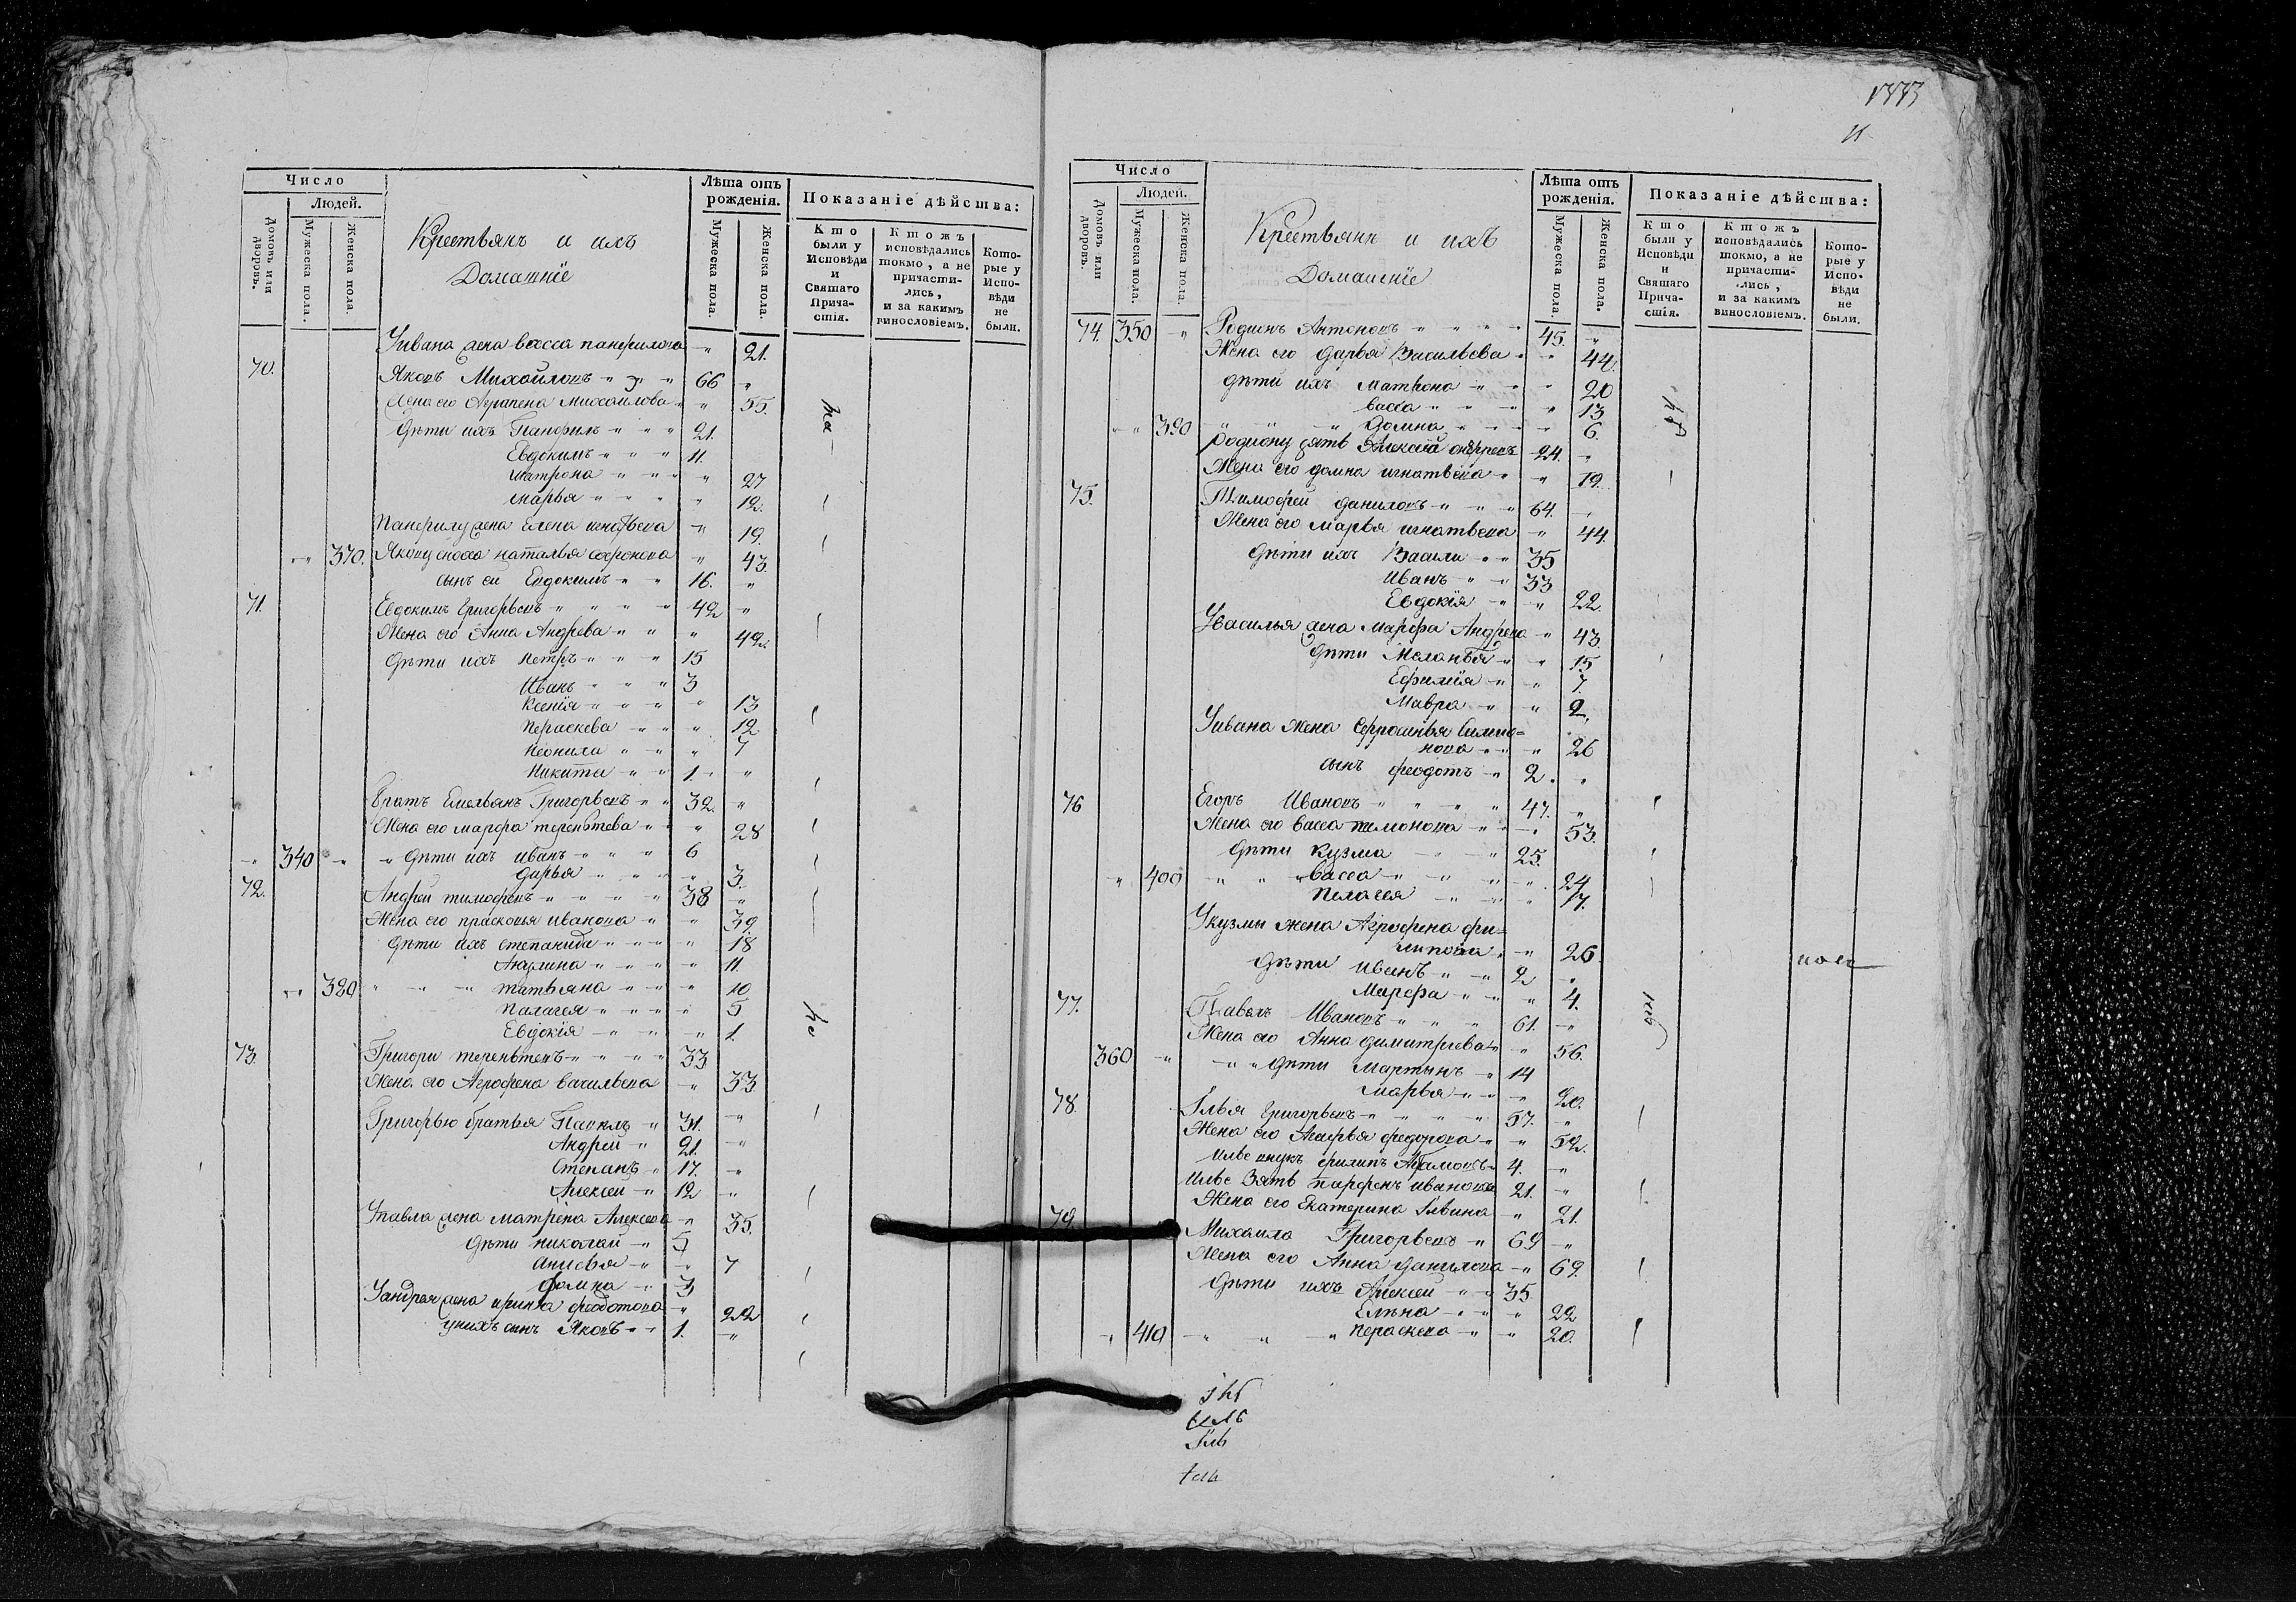 Число
Людей.
Домовъ или дворовъ.
Мужеска пола.
Женска пола.
Крестьянъ и ихъ
Домашнїе
Лѣта отъ рожденія.
Мужеска пола.
Женска пола.
Показаніе дѣйства:
Кто были у Исповѣди и Святаго Прича-стія.
Ктожъ исповѣдались токмо, а не причасти-лись, и за какимъ винословіемъ.
Кото-рые у Испо-вѣди не были.
Уивана жена васса панфилова " 21.
70. Яковъ Михайловъ " " " 66 "
Жена его Аграпена михаилова " " 55.
Дѣти ихъ Панфилъ " " " 21.
Евдокимъ " " " 11.
матрона " " " " 27
марья " " " " 12.
Панфилу жена Елена игнатьева " 19.
" 370. Якову сноха наталья софронова " 43.
сынъ ея Евдокимъ " " 16. "
71. Евдокимъ Григорьевъ " " " " 42 "
Жена его Анна Андрева " " " 42.
Дѣти ихъ петръ " " " 15
Иванъ " " " 3
Ксенїя " " " " 13
пераскева " " " 12
неонила " " " 7
Никита " " 1. "
братъ Емельянъ Григорьевъ " " 32. "
Жена его марфа терентьева " " " 28
" 340 " " Дѣти ихъ иванъ " " " 6
дарья " " " " 3.
72. Андрей тимофеевъ " " " " 38 "
Жена его прасковья иванова " " 39.
Дѣти ихъ степанида " " " " 18
Акулина " " " " 11.
" 380 " " " татьяна " " " 10
палагея " " " " 5
Евдокїя " " " " 1.
73. Григори терентьевъ " " " " 33
Жена его Агрофена васильева " 33
Григорью братья Павелъ " 31. "
Андрей " 21. "
Степанъ " 17. "
Алексеи " 12 "
Упавла жена матрена Алексева " 35.
Дѣти николай " 5
анисья " " 7
фомка " 3
Уандрея жена ирина федотова " 22
унихъ сынъ Яковъ " " 1. "
11
Число
Людей.
Домовъ или дворовъ.
Мужеска пола.
Женска пола.
Крестьянъ и ихъ
Домашнїе
Лѣта отъ рожденія.
Мужеска пола.
Женска пола.
Показаніе дѣйства:
Кто были у Исповѣди и Святаго Прича-стія.
Ктожъ исповѣдались токмо, а не причасти-лись, и за какимъ винословіемъ.
Кото-рые у Испо-вѣди не были.
74. 350 " Родионъ Антоновъ " " " " 45. "
Жена его Дарья Васильева " " 44.
дѣти ихъ матрона " " " 20
васса " " " " 13
" " 390 " " " Домна " " " " 6.
Родиону зять Алексѣй 24. "
Жена его домна игнатьева " " 19.
75. Тимофеи даниловъ " " " 64. "
Жена его Марья игнатьева " 44.
Дѣти ихъ Васили " " 35
Иванъ " " 33
Евдокїя " " 22.
Увасилья жена марфа Андрева " 43.
Дѣти Меланья " " 15
Ефимїя " " 7.
Мавра " " 2.
Уивана жена Ефросинья Симио=
нова " " " 26
сынъ феодотъ " 2. "
76 Егоръ Ивановъ " " " " 47. "
Жена его васса пимонова " " " 53.
Дѣти Кузма " " 25.
" 400 " " " васса " " " " 24
Пелагея " " " 17.
Укузмы жена Агрофена фи=
липова " " 26.
Дѣти иванъ " " 2 "
Марфа " " " 4.
77. Павелъ Ивановъ " " " 61. "
Жена его Анна димитриева " " 56.
360 " " " дѣти Мартынъ " 14
марья " " " 20.
78. Iлья Григорьевъ " " " " 57. "
Жена его Агафья федорова " " 52.
Илье внукъ филипъ 4. "
Илье зять парфенъ ивановъ 21. "
Жена его Екатерина Iльина " 21.
79. Михаила Григорьевъ " 69 "
Жена его Анна данилова " 69.
Дѣти ихъ Алексеи " " 35
Елена " " " 22
" 410 " " " пераскева " " 20.